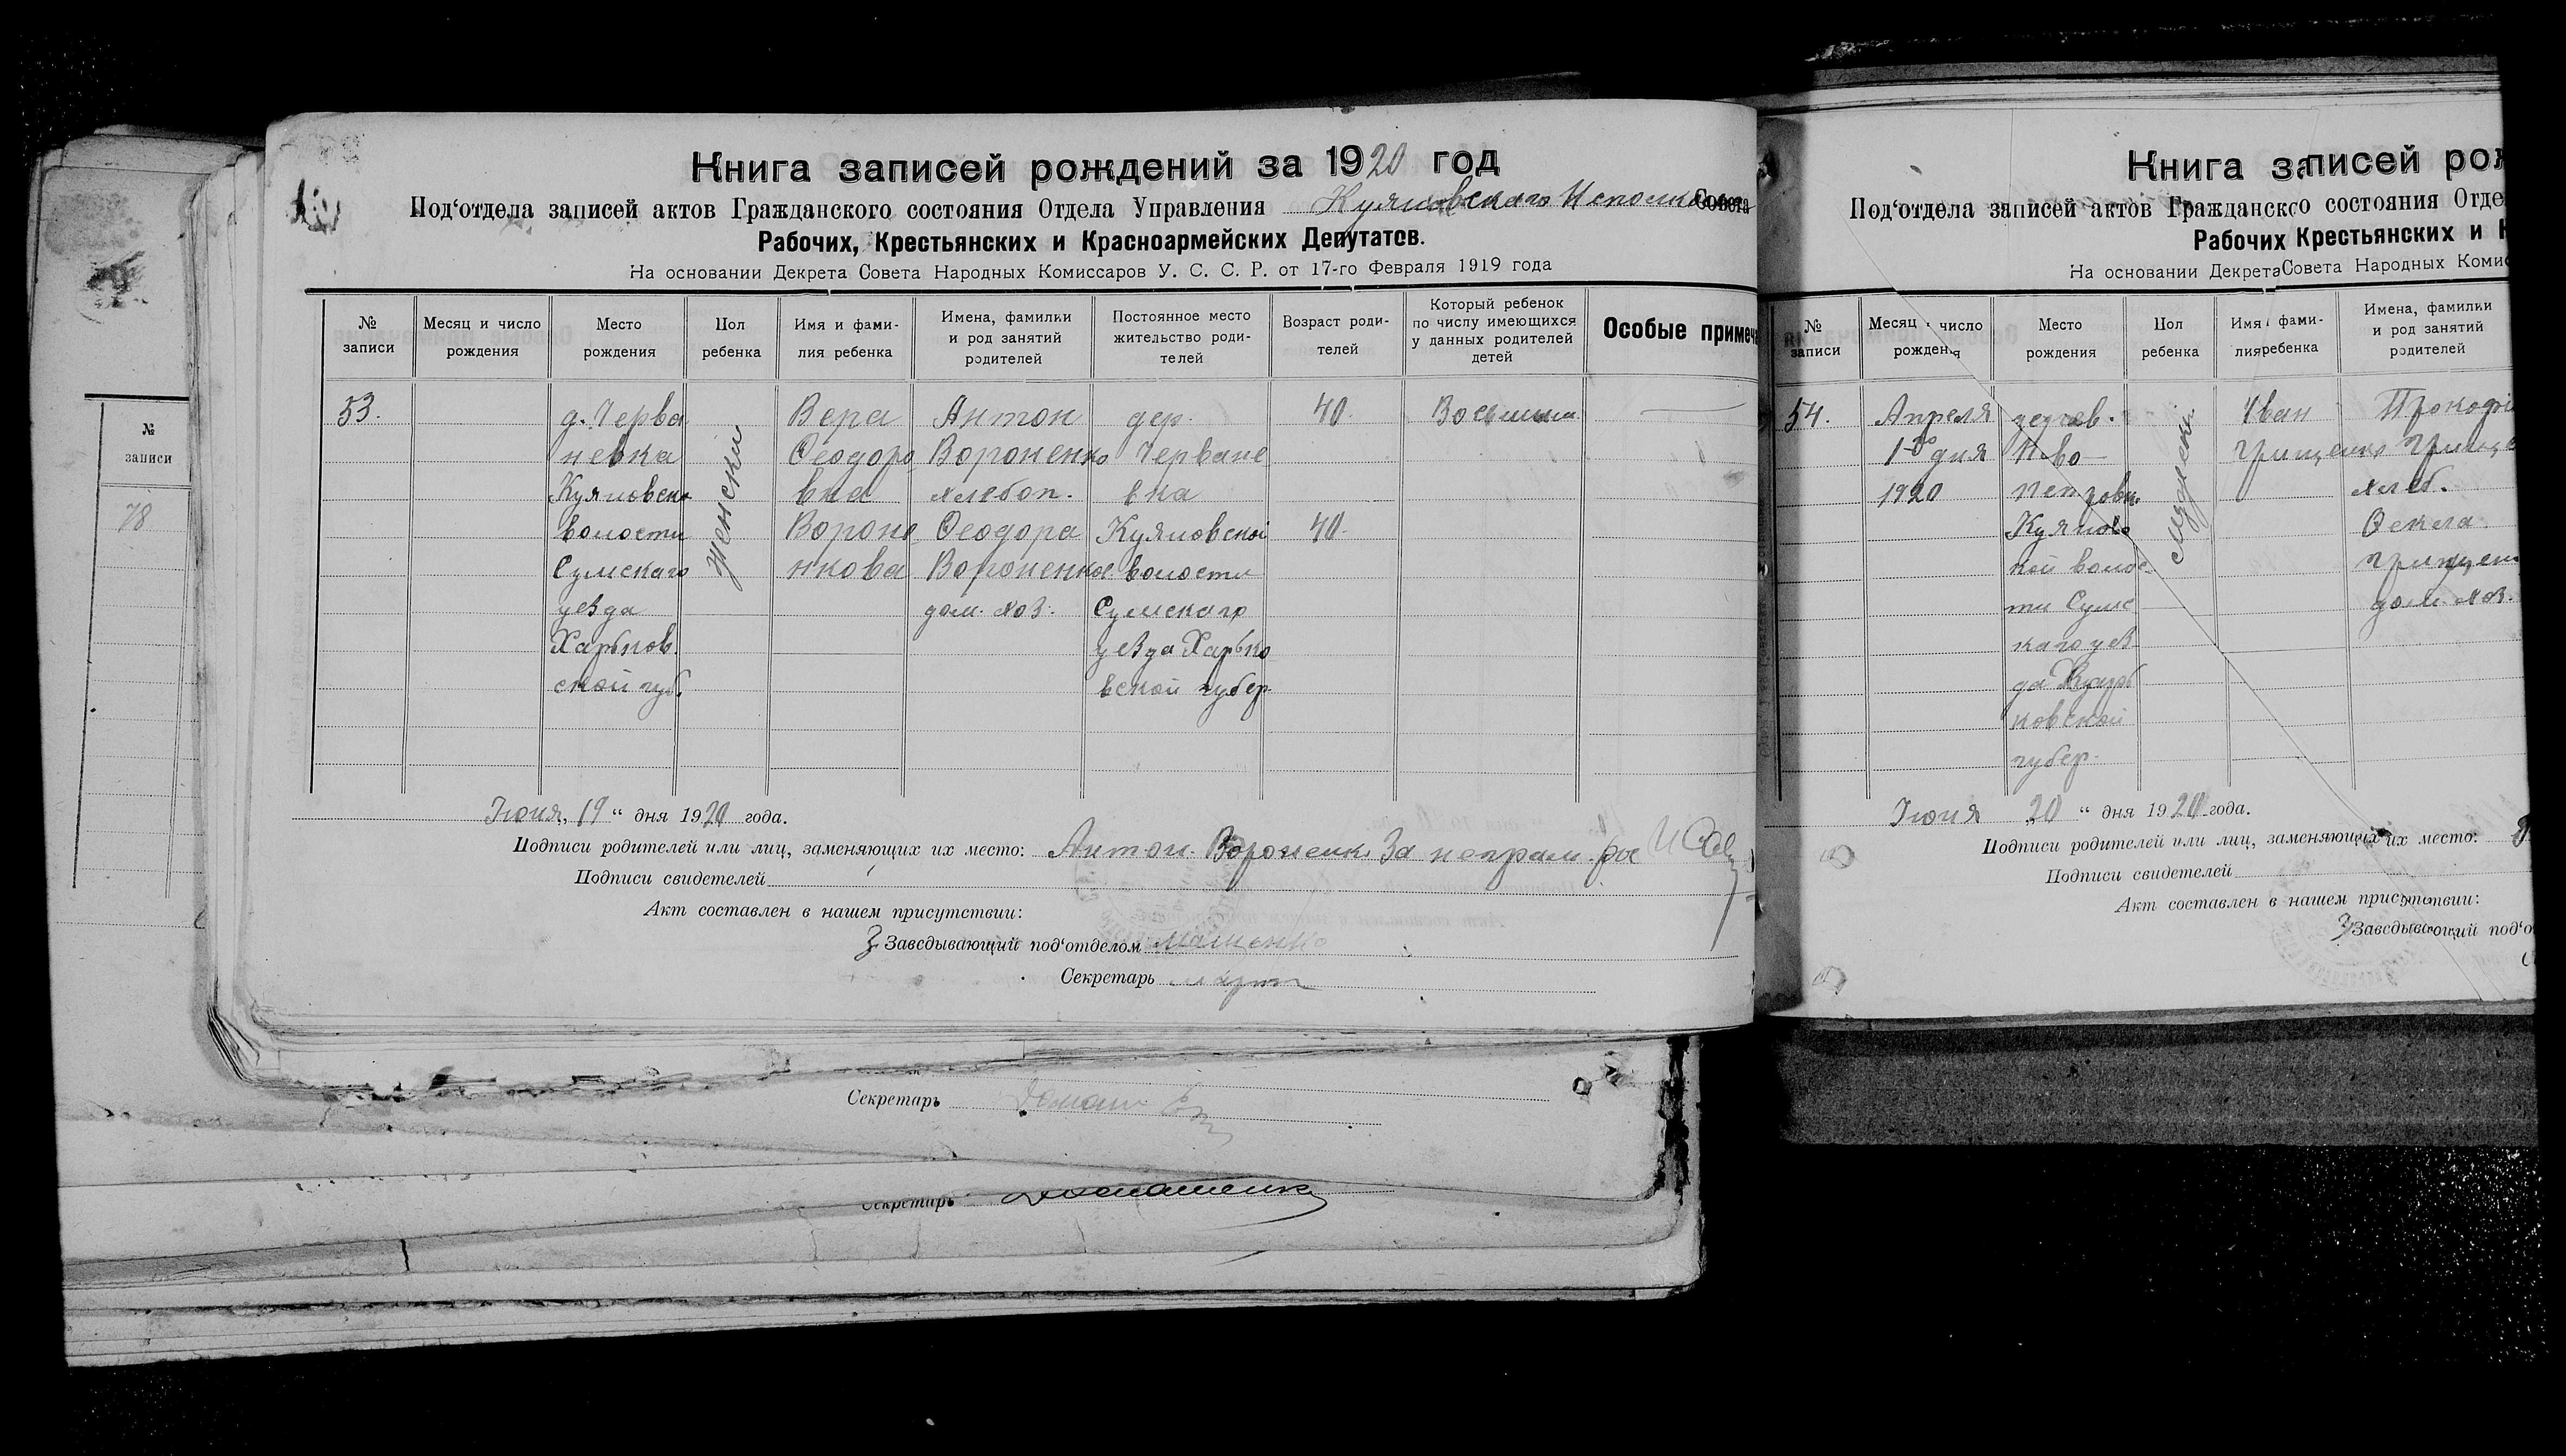 Книга записей рождений за 1920 год
Под‘отдела записей актов Гражданского состояния Отдела Управления Куяновскаго Исполкома Совета
Рабочих, Крестьянских и Красноармейских Депутатов.
На основании Декрета Совета Народных Комиссаров У. С. С. Р. от 17-го Февраля 1919 года
№ записи
Месяц и число рождения
Место рождения
Пол ребенка
Имя и фами-
лия ребенка
Имена, фамилки
и род занятий
родителей
Постоянное место
жительство роди-
телей
Возраст роди-
телей
Который ребенок
по числу имеющихся
у данных родителей
детей
Особые примеча
53.
д. Черва
невка
Куяновско
волости
Сумскаго
уезда
Харьков.
ской губ.
женский
Вера
Феодоро
вна
Вороне
нкова
Антон
Вороненко
хлебоп.
Феодора
Вороненкое
дом. хоз.
дер.
Черване
вка
Куяновской
волости
Сумскаго
уезда Харько
вской губер.
40.
40.
Восьмым
Июня, 19 “ дня 1920 года.
Подписи родителей или лиц, заменяющих их место: Антон Вороненко За неграм. рос
Подписи свидетелей
Акт составлен в нашем присутствии:
З Заведывающий под‘отделом
Секретарь
Секретарь
Секретарь Домашенко
№
записи
78
Книга записей рож
Под‘отдела записей актов Гражданского состояния Отде
Рабочих Крестьянских и К
На основании Декрета Совета Народных Комис
№
записи
Месяц и число
рождения
Место
рождения
Пол
ребенка
Имя и фами-
лия ребенка
Имена, фамилки
и род занятий
родителей
54.
Апреля
1го дня
1920
дерев.
Ново
петровк.
Куянов
кой волос
ти Сумс
каго уез
да Харь
ковской
губер.
Мужеск.
Иван
Грищенко
Прокофи
Грище
хлеб.
Фекла
Грищен
дом. хоз.
Июня 20 “ дня 1920 года.
Подписи родителей или лиц, заменяющих их место:
Подписи свидетелей
Акт составлен в нашем присутствии:
З Заведывающий под‘о